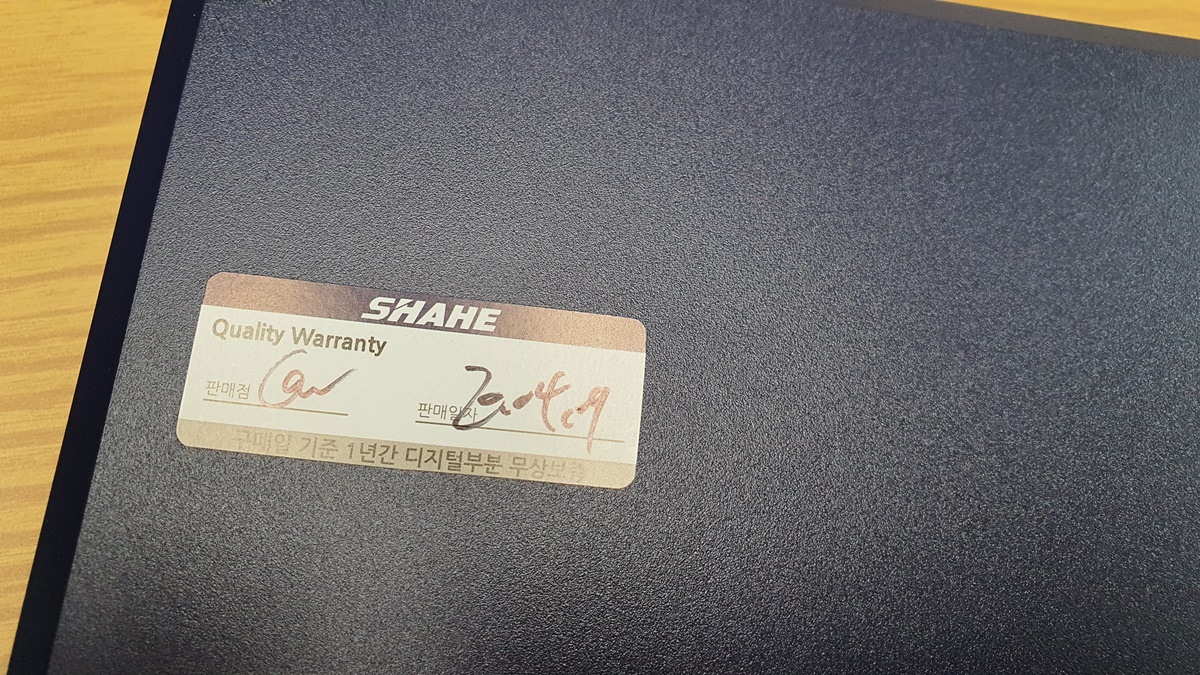 SHAHE
Quality Warranty
판매점
판매일자
구매일 기준 1년간 디지털부분 무상보증